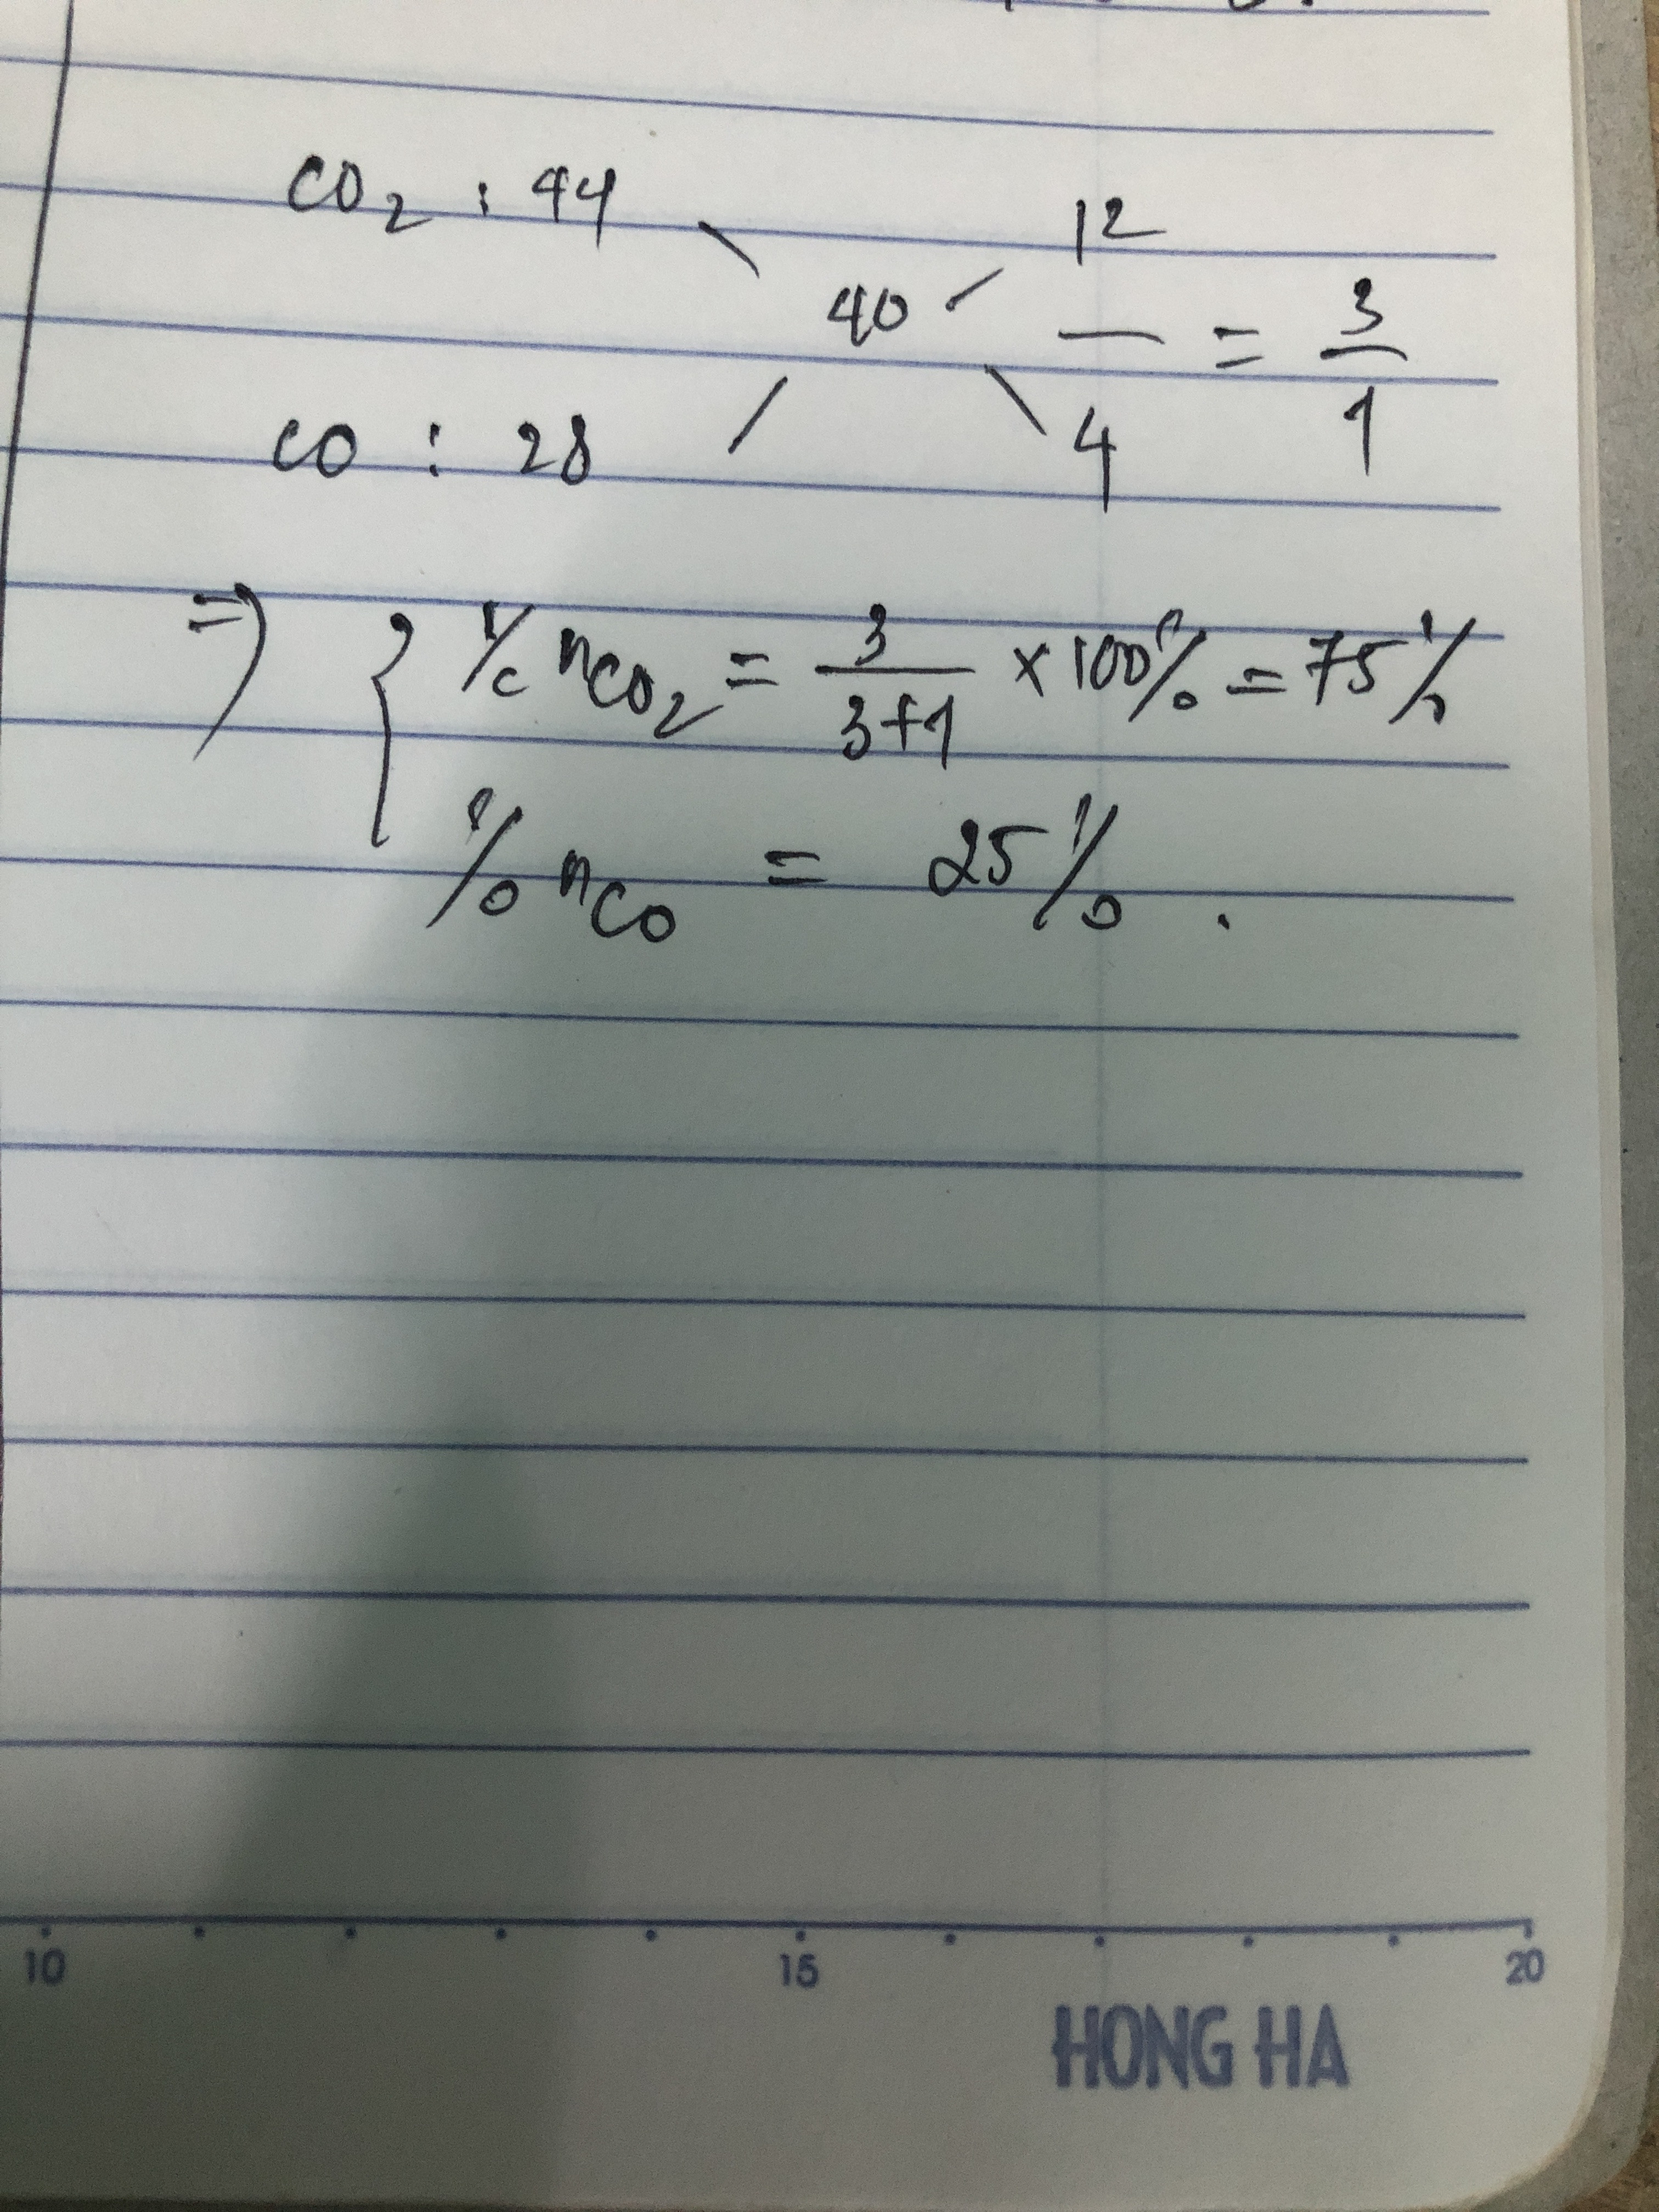 CO2 : 44
12
40
— = 3/1
CO : 28
4
=> { % nCO2 = 3/(3+1) × 100% = 75%
% nCO = 25% .
10 15 20
HONG HA